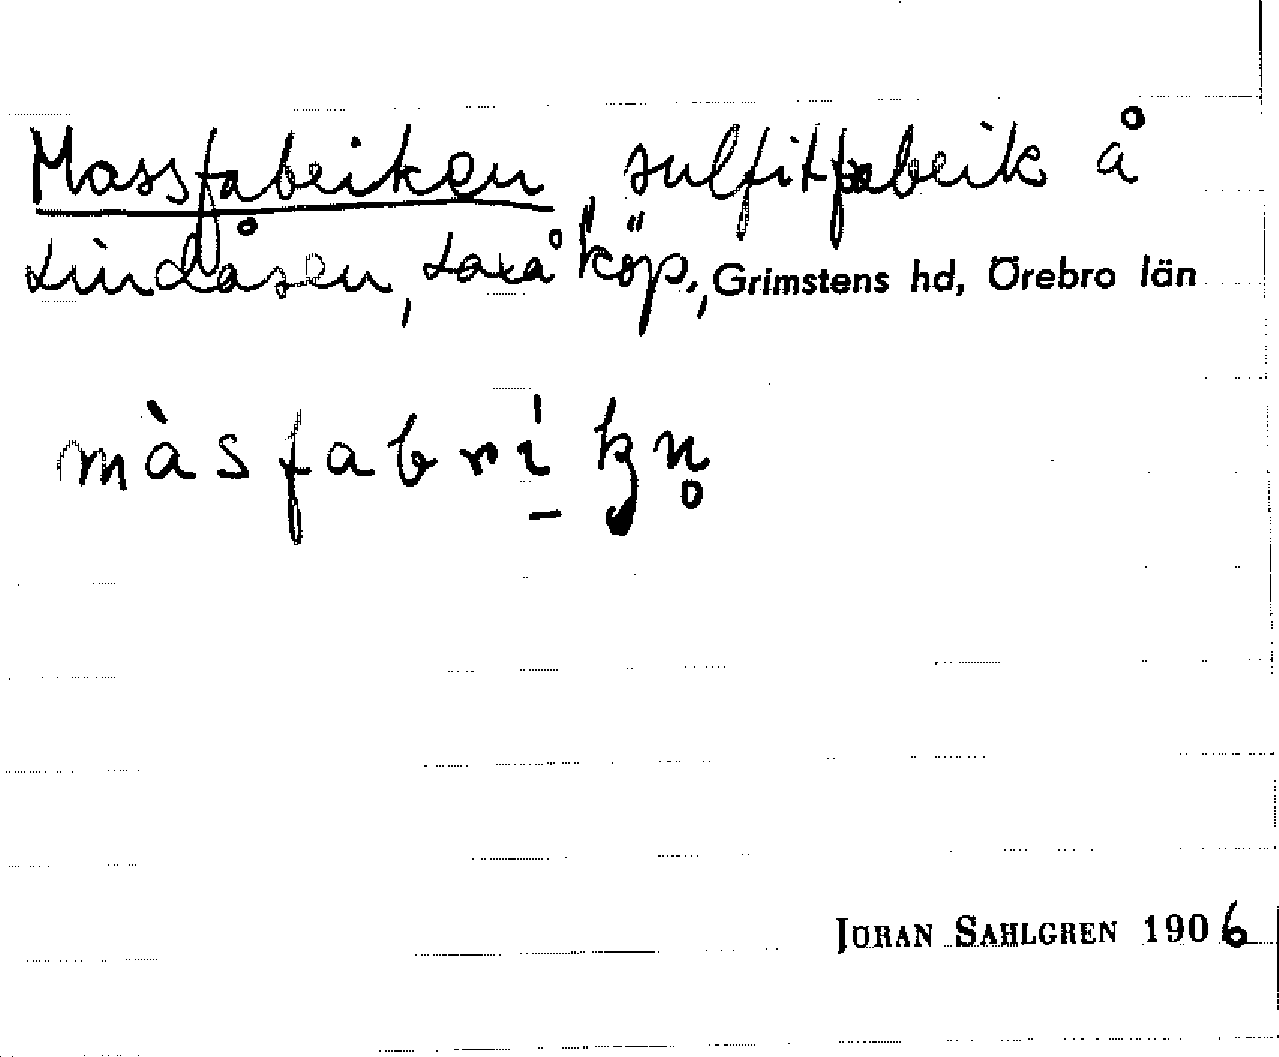 Massfabriken, sulfitfabrik å
Lindåsen, Laxå köp., Grimstens hd, Örebro län
màsfabrı̍kn̥
JÖRAN SAHLGREN 1906